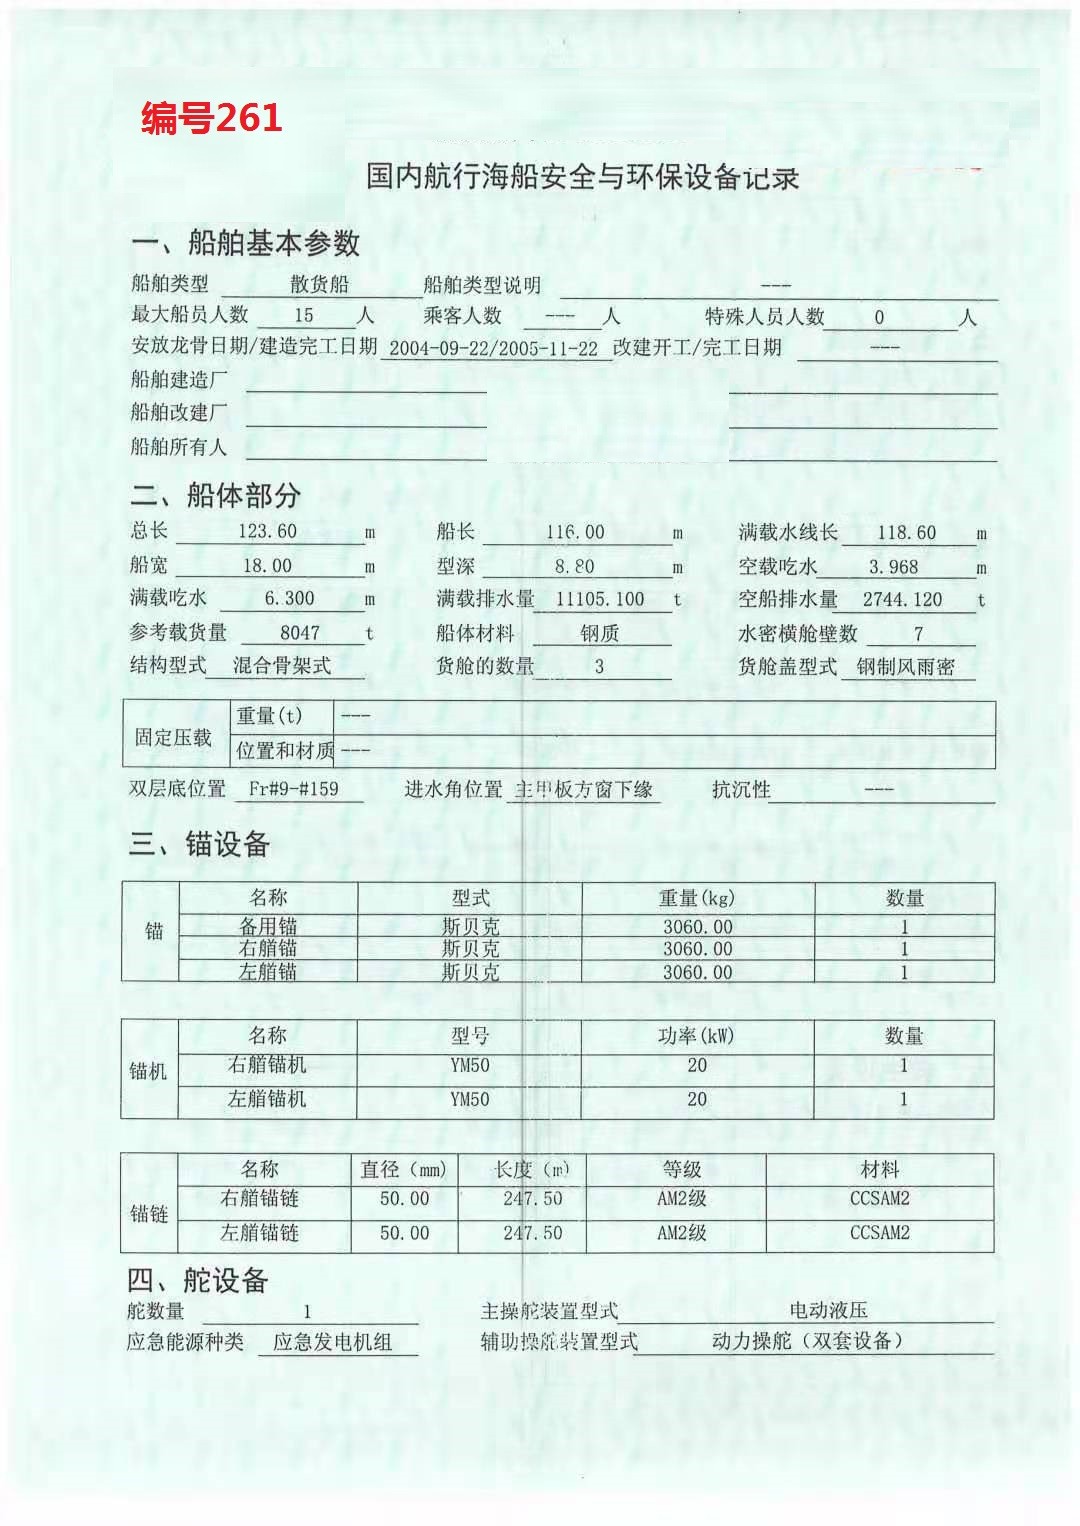 编号261
国内航行海船安全与环保设备记录
一、船舶基本参数
船舶类型 散货船 船舶类型说明 ---
最大船员人数 15 人 乘客人数 --- 人 特殊人员人数 0 人
安放龙骨日期/建造完工日期 2004-09-22/2005-11-22 改建开工/完工日期 ---
船舶建造厂
船舶改建厂
船舶所有人
二、船体部分
总长 123.60 m 船长 116.00 m 满载水线长 118.60 m
船宽 18.00 m 型深 8.80 m 空载吃水 3.968 m
满载吃水 6.300 m 满载排水量 11105.100 t 空船排水量 2744.120 t
参考载货量 8047 t 船体材料 钢质 水密横舱壁数 7
结构型式 混合骨架式 货舱的数量 3 货舱盖型式 钢制风雨密
固定压载 重量(t) ---
位置和材质 ---
双层底位置 Fr#9-#159 进水角位置 主甲板方窗下缘 抗沉性 ---
三、锚设备
锚 名称 型式 重量(kg) 数量
备用锚 斯贝克 3060.00 1
右艏锚 斯贝克 3060.00 1
左艏锚 斯贝克 3060.00 1
锚机 名称 型号 功率(kW) 数量
右艏锚机 YM50 20 1
左艏锚机 YM50 20 1
锚链 名称 直径（mm) 长度（m） 等级 材料
右艏锚链 50.00 247.50 AM2级 CCSAM2
左艏锚链 50.00 247.50 AM2级 CCSAM2
四、舵设备
舵数量 1 主操舵装置型式 电动液压
应急能源种类 应急发电机组 辅助操舵装置型式 动力操舵（双套设备）